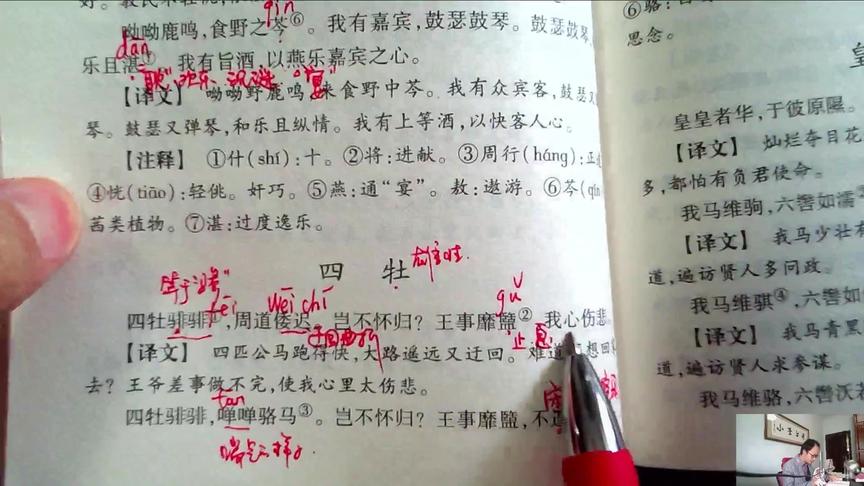 qín
呦呦鹿鸣,食野之芩⑥。我有嘉宾,鼓瑟鼓琴。鼓瑟鼓琴
dān
乐且湛⑦。我有旨酒,以燕乐嘉宾之心。
【译文】 呦呦野鹿鸣,来食野中芩。我有众宾客,鼓瑟
琴。鼓瑟又弹琴,和乐且纵情。我有上等酒,以快客人心。
【注释】 ①什(shí):十。②将:进献。③周行(háng):正
④恍(tiāo):轻佻。奸巧。⑤燕:通“宴”。敖:遨游。⑥芩(qín
茜类植物。⑦湛:过度逸乐。
四 牡
雄性
fēi
wēi chí
gǔ
四牡骓骓①,周道倭迟。岂不怀归?王事靡盬②,我心伤悲
迂回曲折
止息
【译文】 四匹公马跑得快,大路遥远又迂回。难道 想回
去?王爷差事做不完,使我心里太伤悲。
tān
四牡骓骓,啴啴骆马③。岂不怀归?王事靡盬,不
喘息
⑥骆:
思念。
皇
皇皇者华,于彼原隰。
【译文】 灿烂夺目花
多,都怕有负君使命。
我马维驹,六辔如濡
【译文】 我马少壮有
道,遍访贤人多问政。
我马维骐④,六辔如
【译文】 我马青黑
道,遍访贤人求参谋。
我马维骆,六辔沃若